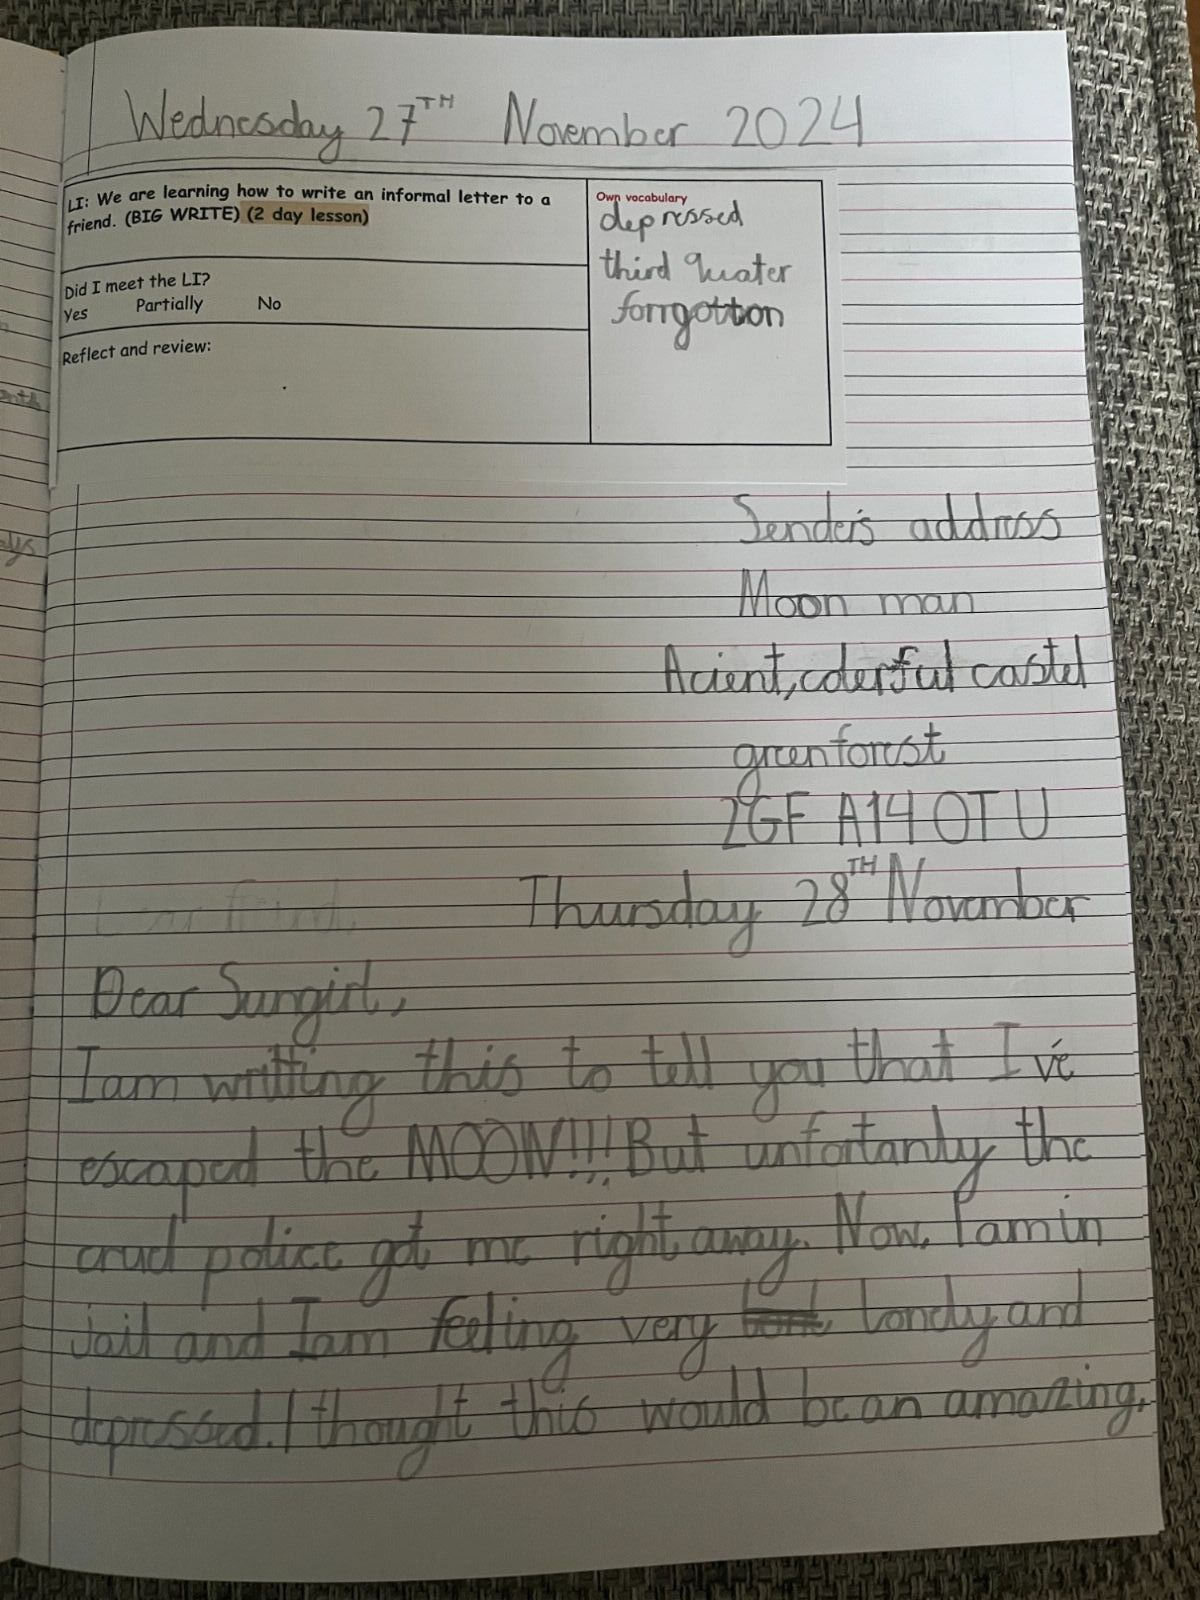 Wednesday 27TH November 2024
LI: We are learning how to write an informal letter to a
friend. (BIG WRITE) (2 day lesson)
Did I meet the LI?
Yes Partially No
Reflect and review:
Own vocabulary
depressed
third quater
forrgotton
Sender's address
Moon man
Acient, colerful castel
green forest
2GF A14 OTU
Thursday 28TH November
Dear friend,
Dear Sungirl,
I am writting this to tell you that I've
escaped the MOON!!! But unfortanly the
cruel police got me right away. Now, I am in
jail and I am feeling very lonely and
depressed. I thought this would be an amazing,